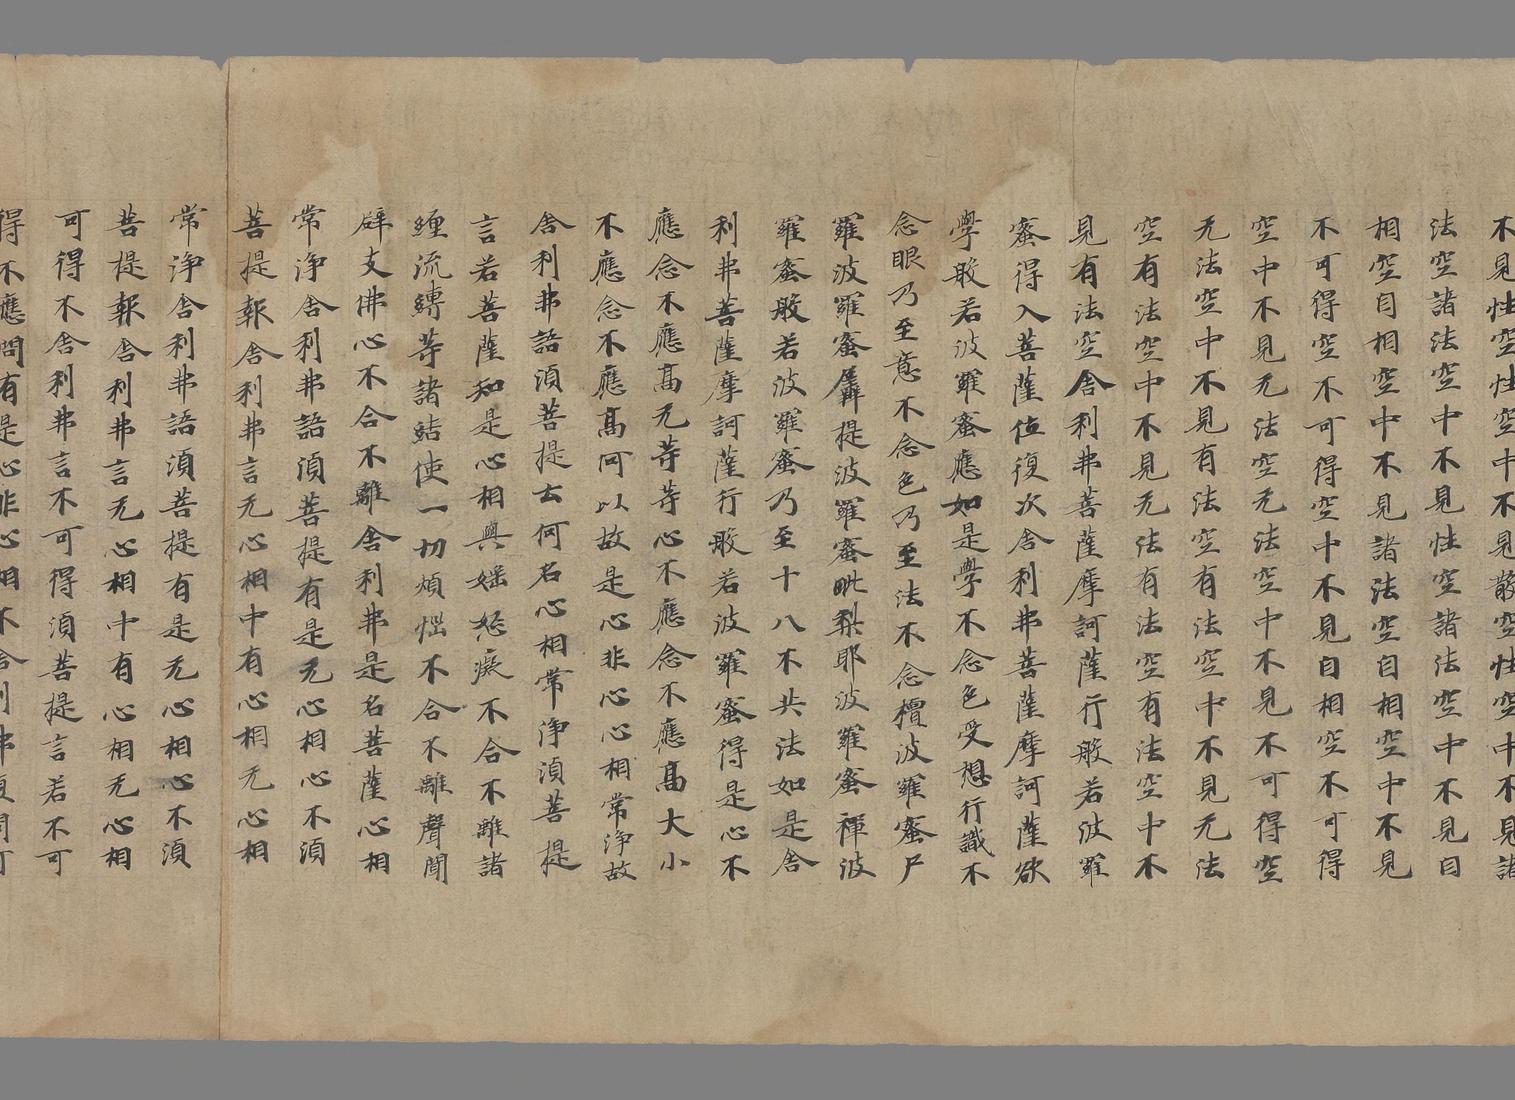 不見性空性空中不見散空性空中不見諸
法空諸法空中不見性空諸法空中不見自
相空自相空中不見諸法空自相空中不見
不可得空不可得空中不見自相空不可得
空中不見无法空无法空中不見不可得空
无法空中不見有法空有法空中不見无法
空有法空中不見无法有法空有法空中不
見有法空舍利弗菩薩摩訶薩行般若波羅
蜜得入菩薩位復次舍利弗菩薩摩訶薩欲
學般若波羅蜜應如是學不念色受想行識不
念眼乃至意不念色乃至法不念檀波羅蜜尸
羅波羅蜜羼提波羅蜜毗梨耶波羅蜜禪波
羅蜜般若波羅蜜乃至十八不共法如是舍
利弗菩薩摩訶薩行般若波羅蜜得是心不
應念不應高无等等心不應念不應高大小
不應念不應高何以故是心非心心相常淨故
舍利弗語湏菩提云何名心相常淨湏菩提
言若菩薩知是心相與婬怒癡不合不離諸
纏流縛等諸結使一切煩惱不合不離聲聞
辟支佛心不合不離舍利弗是名菩薩心相
常淨舍利弗語湏菩提有是无心相心不湏
菩提報舍利弗言无心相中有心相无心相
常淨舍利弗語湏菩提有是无心相心不湏
菩提報舍利弗言无心相中有心相无心相
可得不舍利弗言不可得湏菩提言若不可
得不應問有是心非心相不舍利弗復問